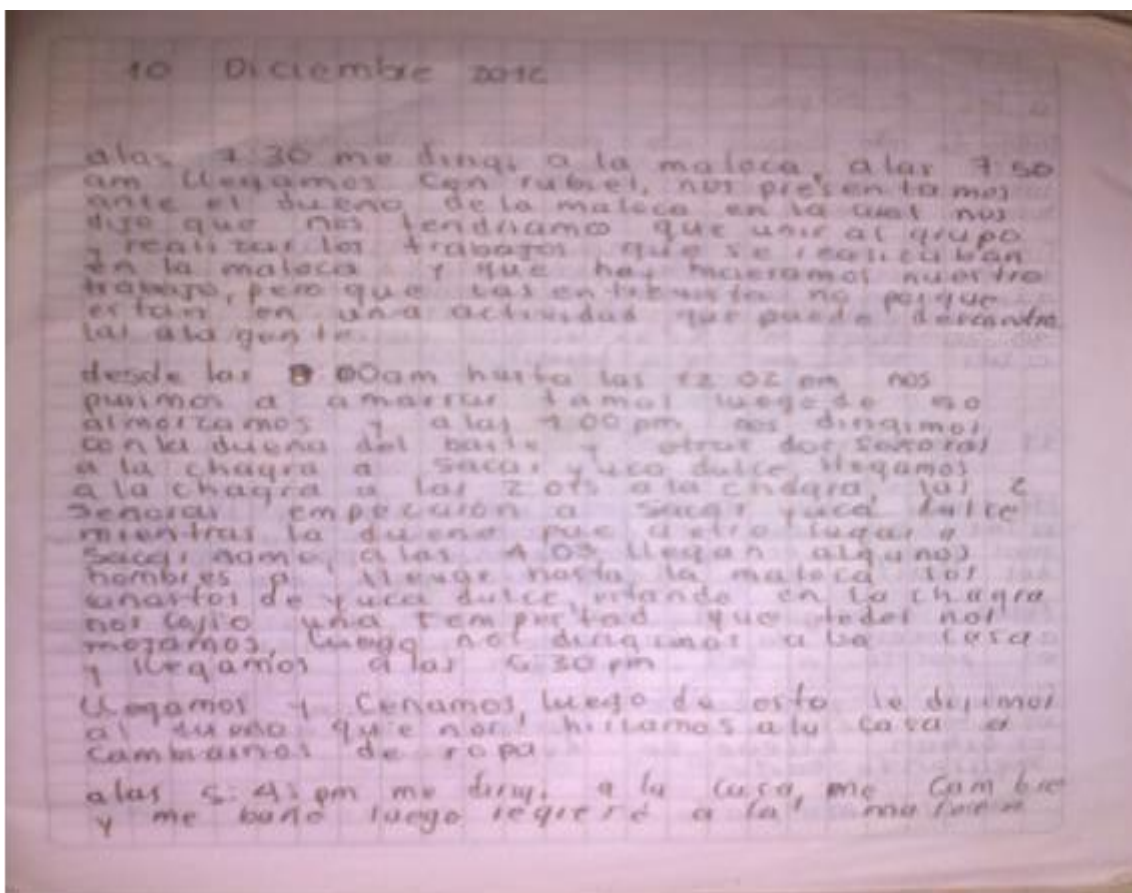 10 Diciembre
alas 7:30 me dirigi a la maloca, a las 7:50
am llegamos con rubiel, nos presentamos
ante el dueño de la maloca en la cual nos
dijo que nos tendriamo que unir al grupo
y realizar los trabajos que se realizaban
en la maloca y que hay hicieramos nuestro
trabajo, pero que las entrevista no porque
estan en una actividad que puede
las ala gente.
desde las 00am hasta las 12 02 pm nos
pusimos a amarrar luego de
almorzamos y a las 1:00 pm nos dirigimos
con la dueña del baile y otras dos señoras
a la chagra a sacar yuca dulce, llegamos
a la chagra a las a la chagra, las 2
señoras a sacar yuca dulce
mientras la dueña fue a otro lugar a
sacar ñame, a las 4 03 llegan algunos
hombres a hasta la maloca los
canastos de yuca dulce, estando en la chagra
nos cojio una tempestad que todos nos
mojamos, luego nos dirigimos a la casa
y llegamos a las 5 30 pm
llegamos y cenamos, luego de esto le dijimos
al dueño que nos a la casa a
cambiarnos de ropa
alas pm me dirigi a la casa, me cambie
y me bañe luego regrese a la maloca